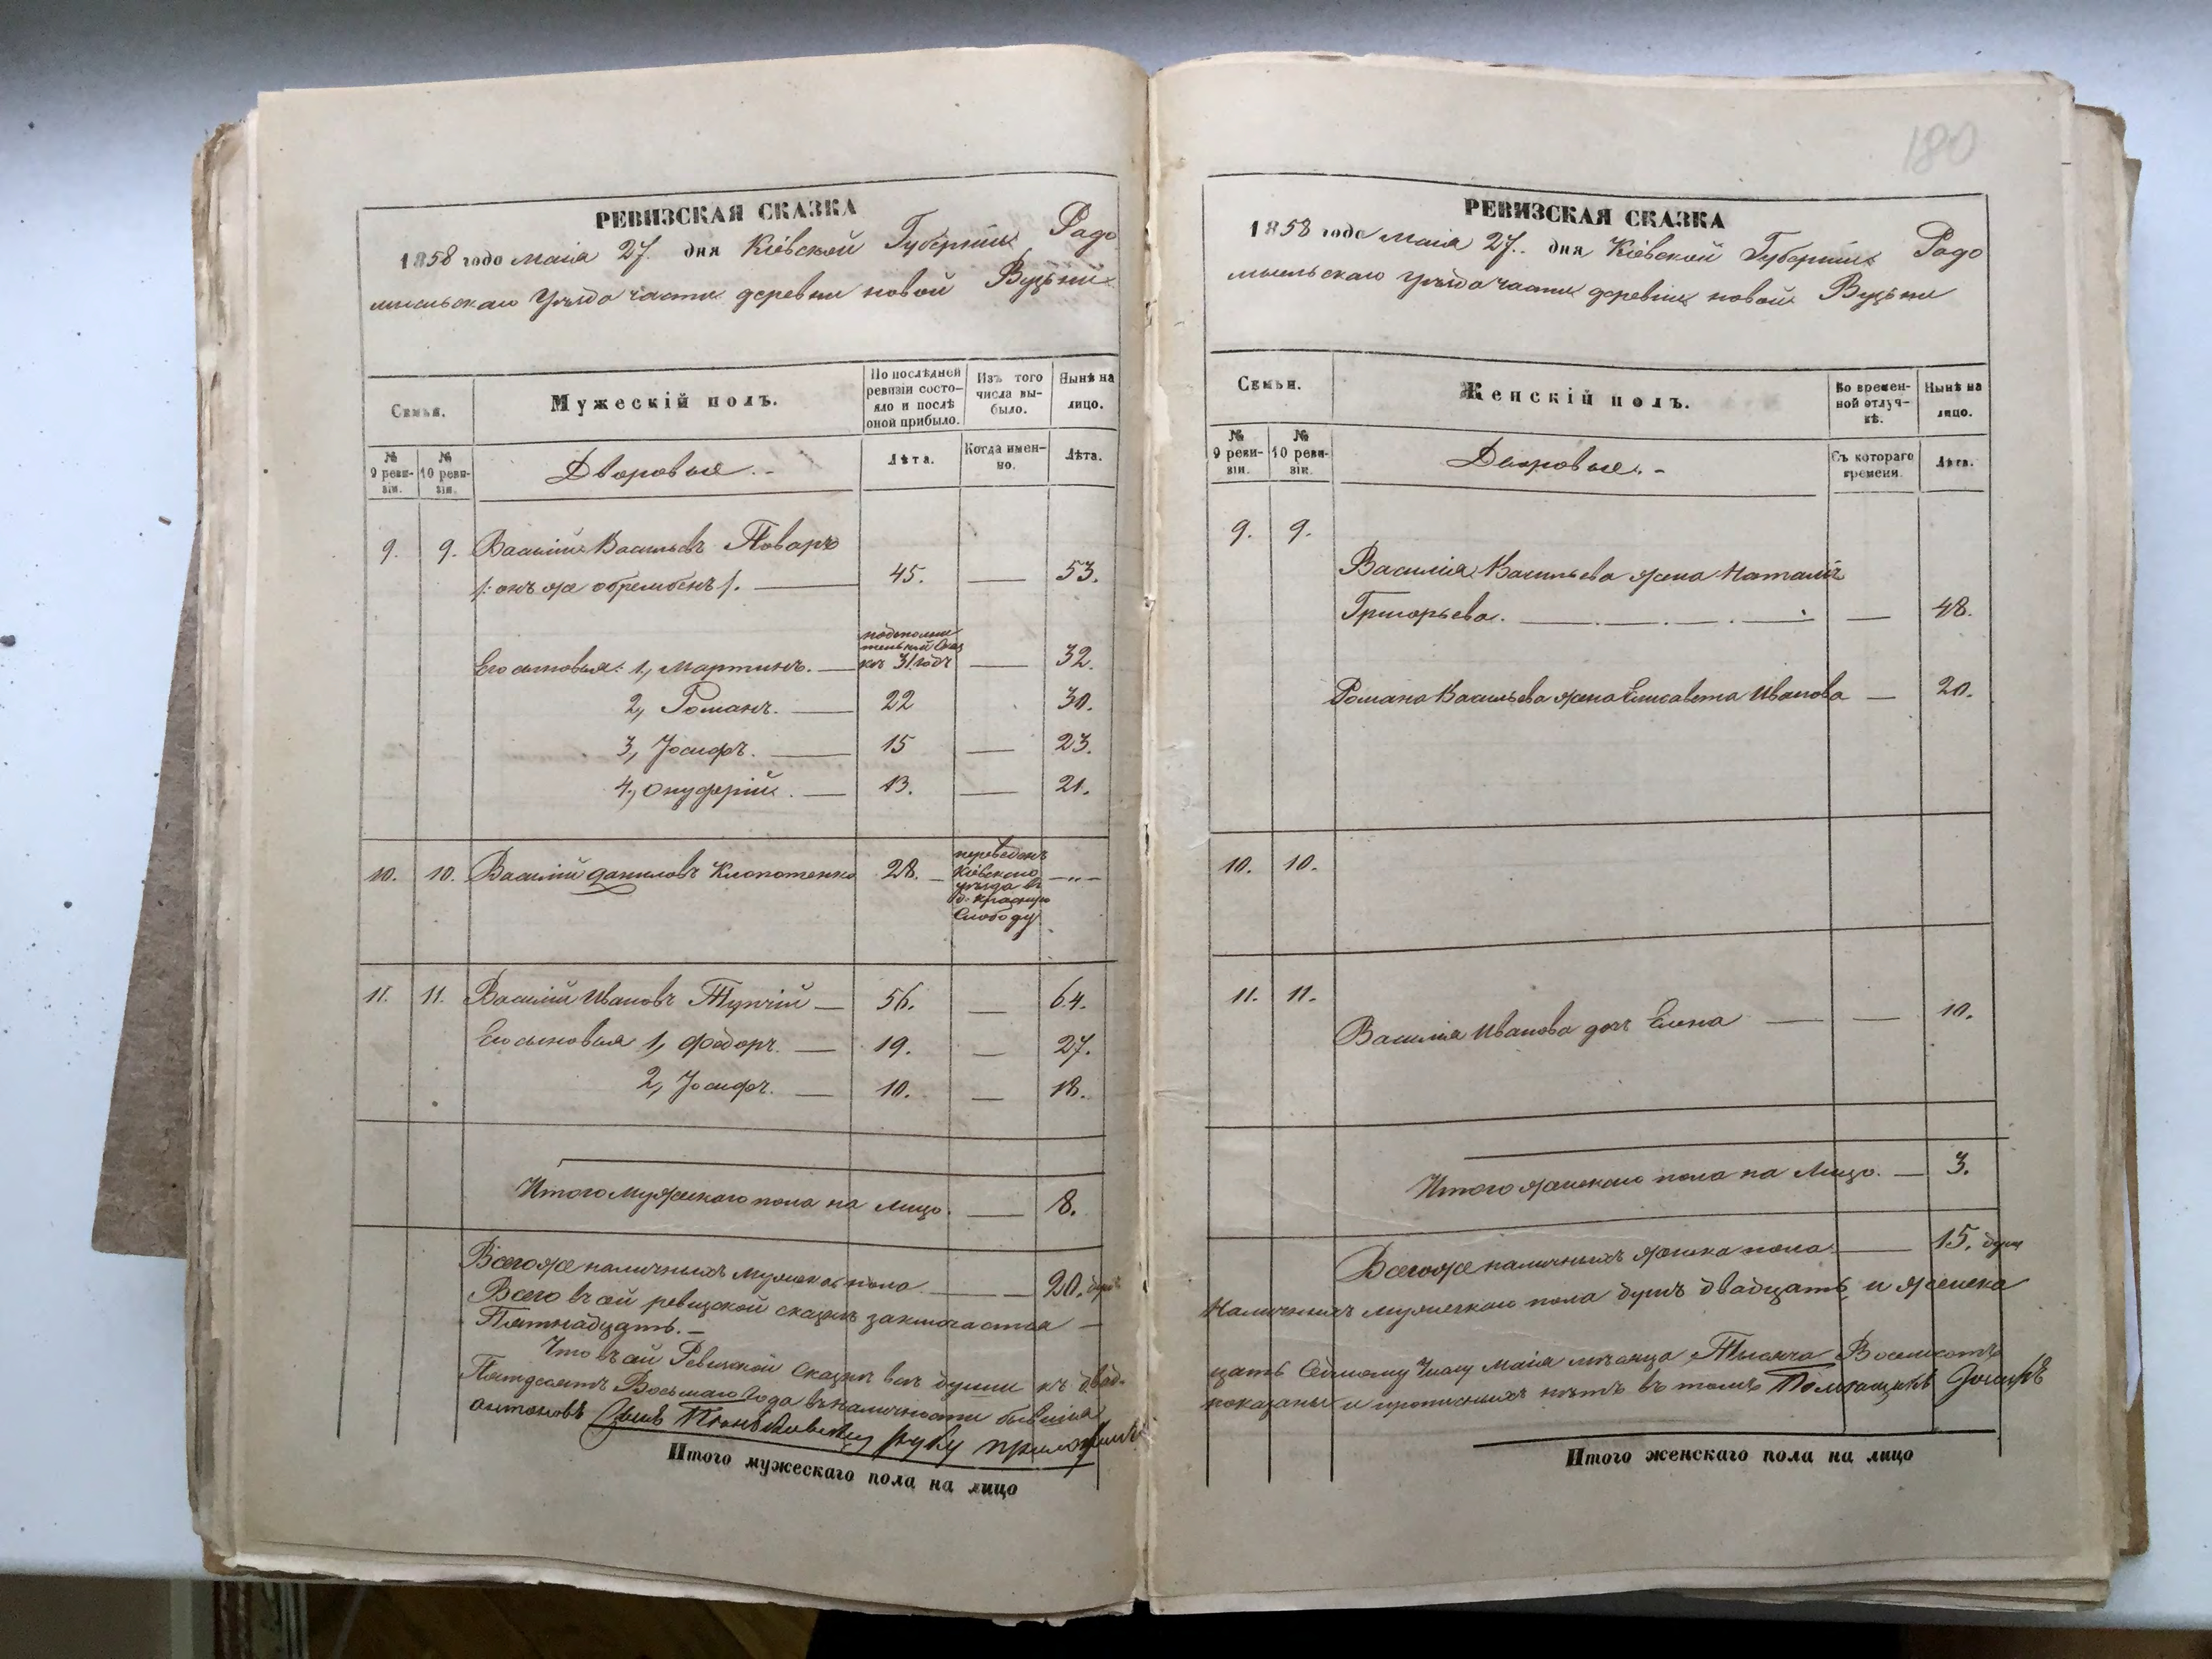 РЕВИЗСКАЯ СКАЗКА
1858 года маія 27. дня Кіевской Губерніи Радо
мысльскаго Уѣзда части деревни новой Буды
Семьи.
Мужескій полъ.
По послѣдней ревизіи состо-
яло и послѣ
оной прибыло.
Изъ того
числа вы-
было.
Нынѣ на
лицо.
№
9 реви-
зіи.
№
10 реви-
зіи.
Дворовые.-
Лѣта.
Когда имен-
но.
Лѣта.
9. 9. Василій Васильевъ Поваръ
/: онъ же обрембенъ/. 45. — 53.
Его сыновья: 1, Мартинъ. къ 31 годъ — 32.
2, Романъ. — 22 30.
3, Іосифъ. — 15 — 23.
4, Онуфрій. — 13. — 21.
10. 10. Василій Даниловъ Клопотенко 28. — переведенъ
Кіевскаго
уѣзда въ
д. Красную
Слободу — „ —
11. 11. Василій Ивановъ Тупчій — 56. — 64.
Его сыновья 1, Федоръ. — 19. — 27.
2, Іосифъ. — 10. — 18.
Итого мужескаго пола на лицо. — 8.
Всего же наличныхъ мужеска пола. — 20. душъ
Всего въ сей ревизской сказкѣ заключается —
Пятнадцать. —
Что въ сей Ревизской Сказкѣ всѣ души къ двад-
Пятдесятъ Восьмаго Года въ наличности бывшія
Антоновъ руку приложилъ
Итого мужескаго пола на лицо
180
РЕВИЗСКАЯ СКАЗКА
1858 года маія 27.. дня Кіевской Губерніи Радо
мысльскаго уѣзда части деревни новой Буды
Семьи.
Женскій полъ.
Во времен-
ной отлуч-
кѣ.
Нынѣ на
лицо.
№
9 реви-
зіи.
№
10 реви-
зіи.
Дворовые. -
Съ котораго
времени.
Лѣта.
9. 9.
Василія Васильева жена Наталія
Григорьева. — — 48.
Романа Васильева жена Елисавета Иванова — 20.
10. 10.
11. 11.
Василія Иванова дочь Елена — — 10.
Итого женскаго пола на лицо. — 3.
Всего же наличныхъ женска пола. — 15. душ
Наличныхъ мужескаго пола душъ двадцать и женска
цать седьмому числу Маія мѣсяца Тысяча Восемсотъ
показаны и прописныхъ нѣтъ въ томъ
Итого женскаго пола на лицо